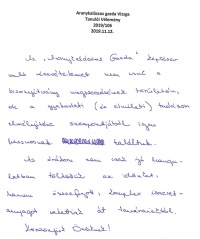 Aranykalászos gazda Vizsga
Tanulói Vélemény
2019/106
2019.11.12.
Az „Aranykalászos Gazda" képzésen
való részvételemet nem csak a
bizonyítvány megszerzésének területén,
de a gyakorlati (és elméleti) tudásom
elmélyítése szempontjából igen
hasznosnak találtam.
Az órákon sem csak jó hangu-
latban töltöttük az időnket,
hanem összefogott, komplex ismeret-
anyagot vehettünk át tanárainktól.
Köszönjük Önöknek!